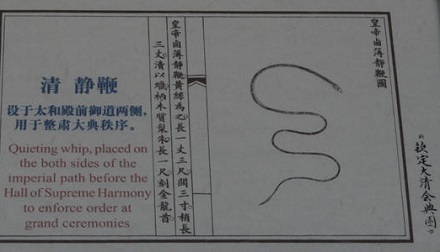 清 静鞭
设于太和殿前御道两侧,
用于整肃大典秩序。
Quieting whip, placed on
the both sides of the
imperial path before the
Hall of Supreme Harmony
to enforce order at
grand ceremonies
皇帝鹵簿靜鞭圖
皇帝鹵簿靜鞭黃絲為之長一丈三尺闊三寸梢長
三丈漬以蠟柄木質髹朱長一尺刻金龍首
欽定大清會典圖